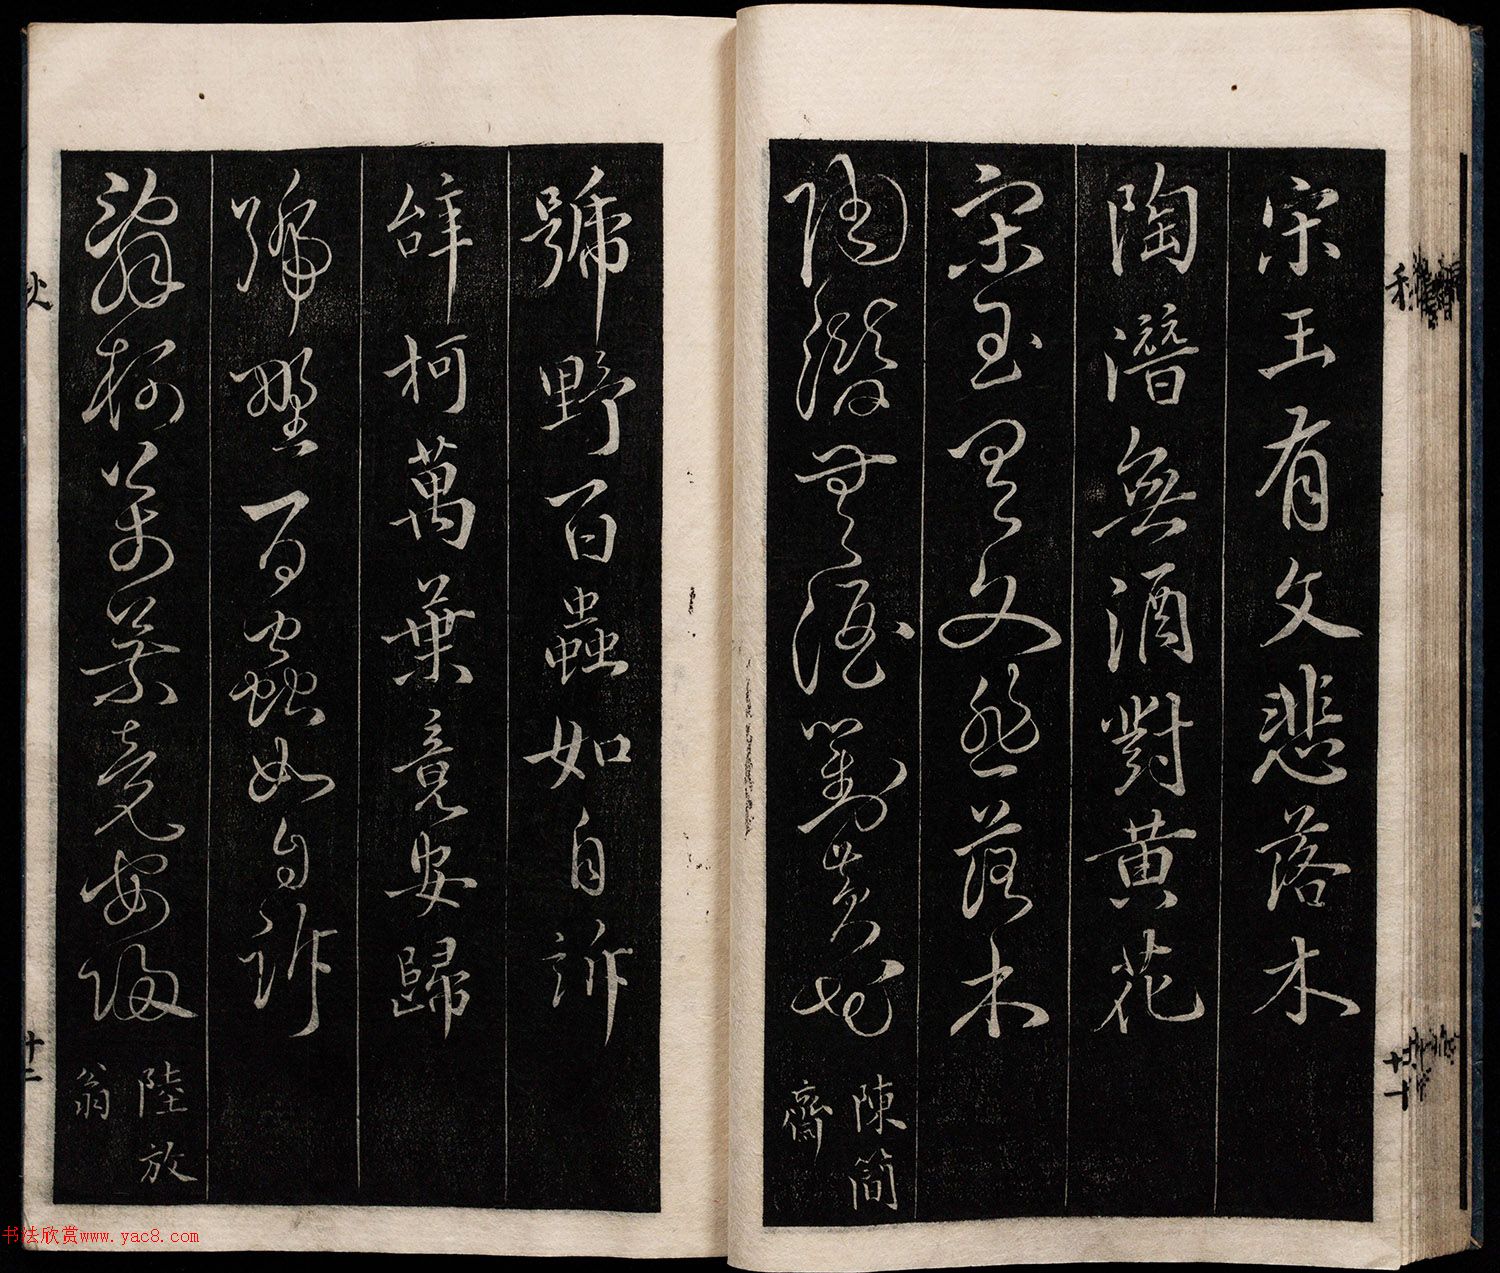 宋王有文悲落木
陶潛無酒對黃花
宋玉有文悲落木
陶潛無酒對黃花
陳簡
齋
號野百蟲如自訴
辝柯萬葉竟安歸
號野百蟲如自訴
辭柯萬葉竟安歸
陸放
翁
十二
书法欣赏www.yac8.com